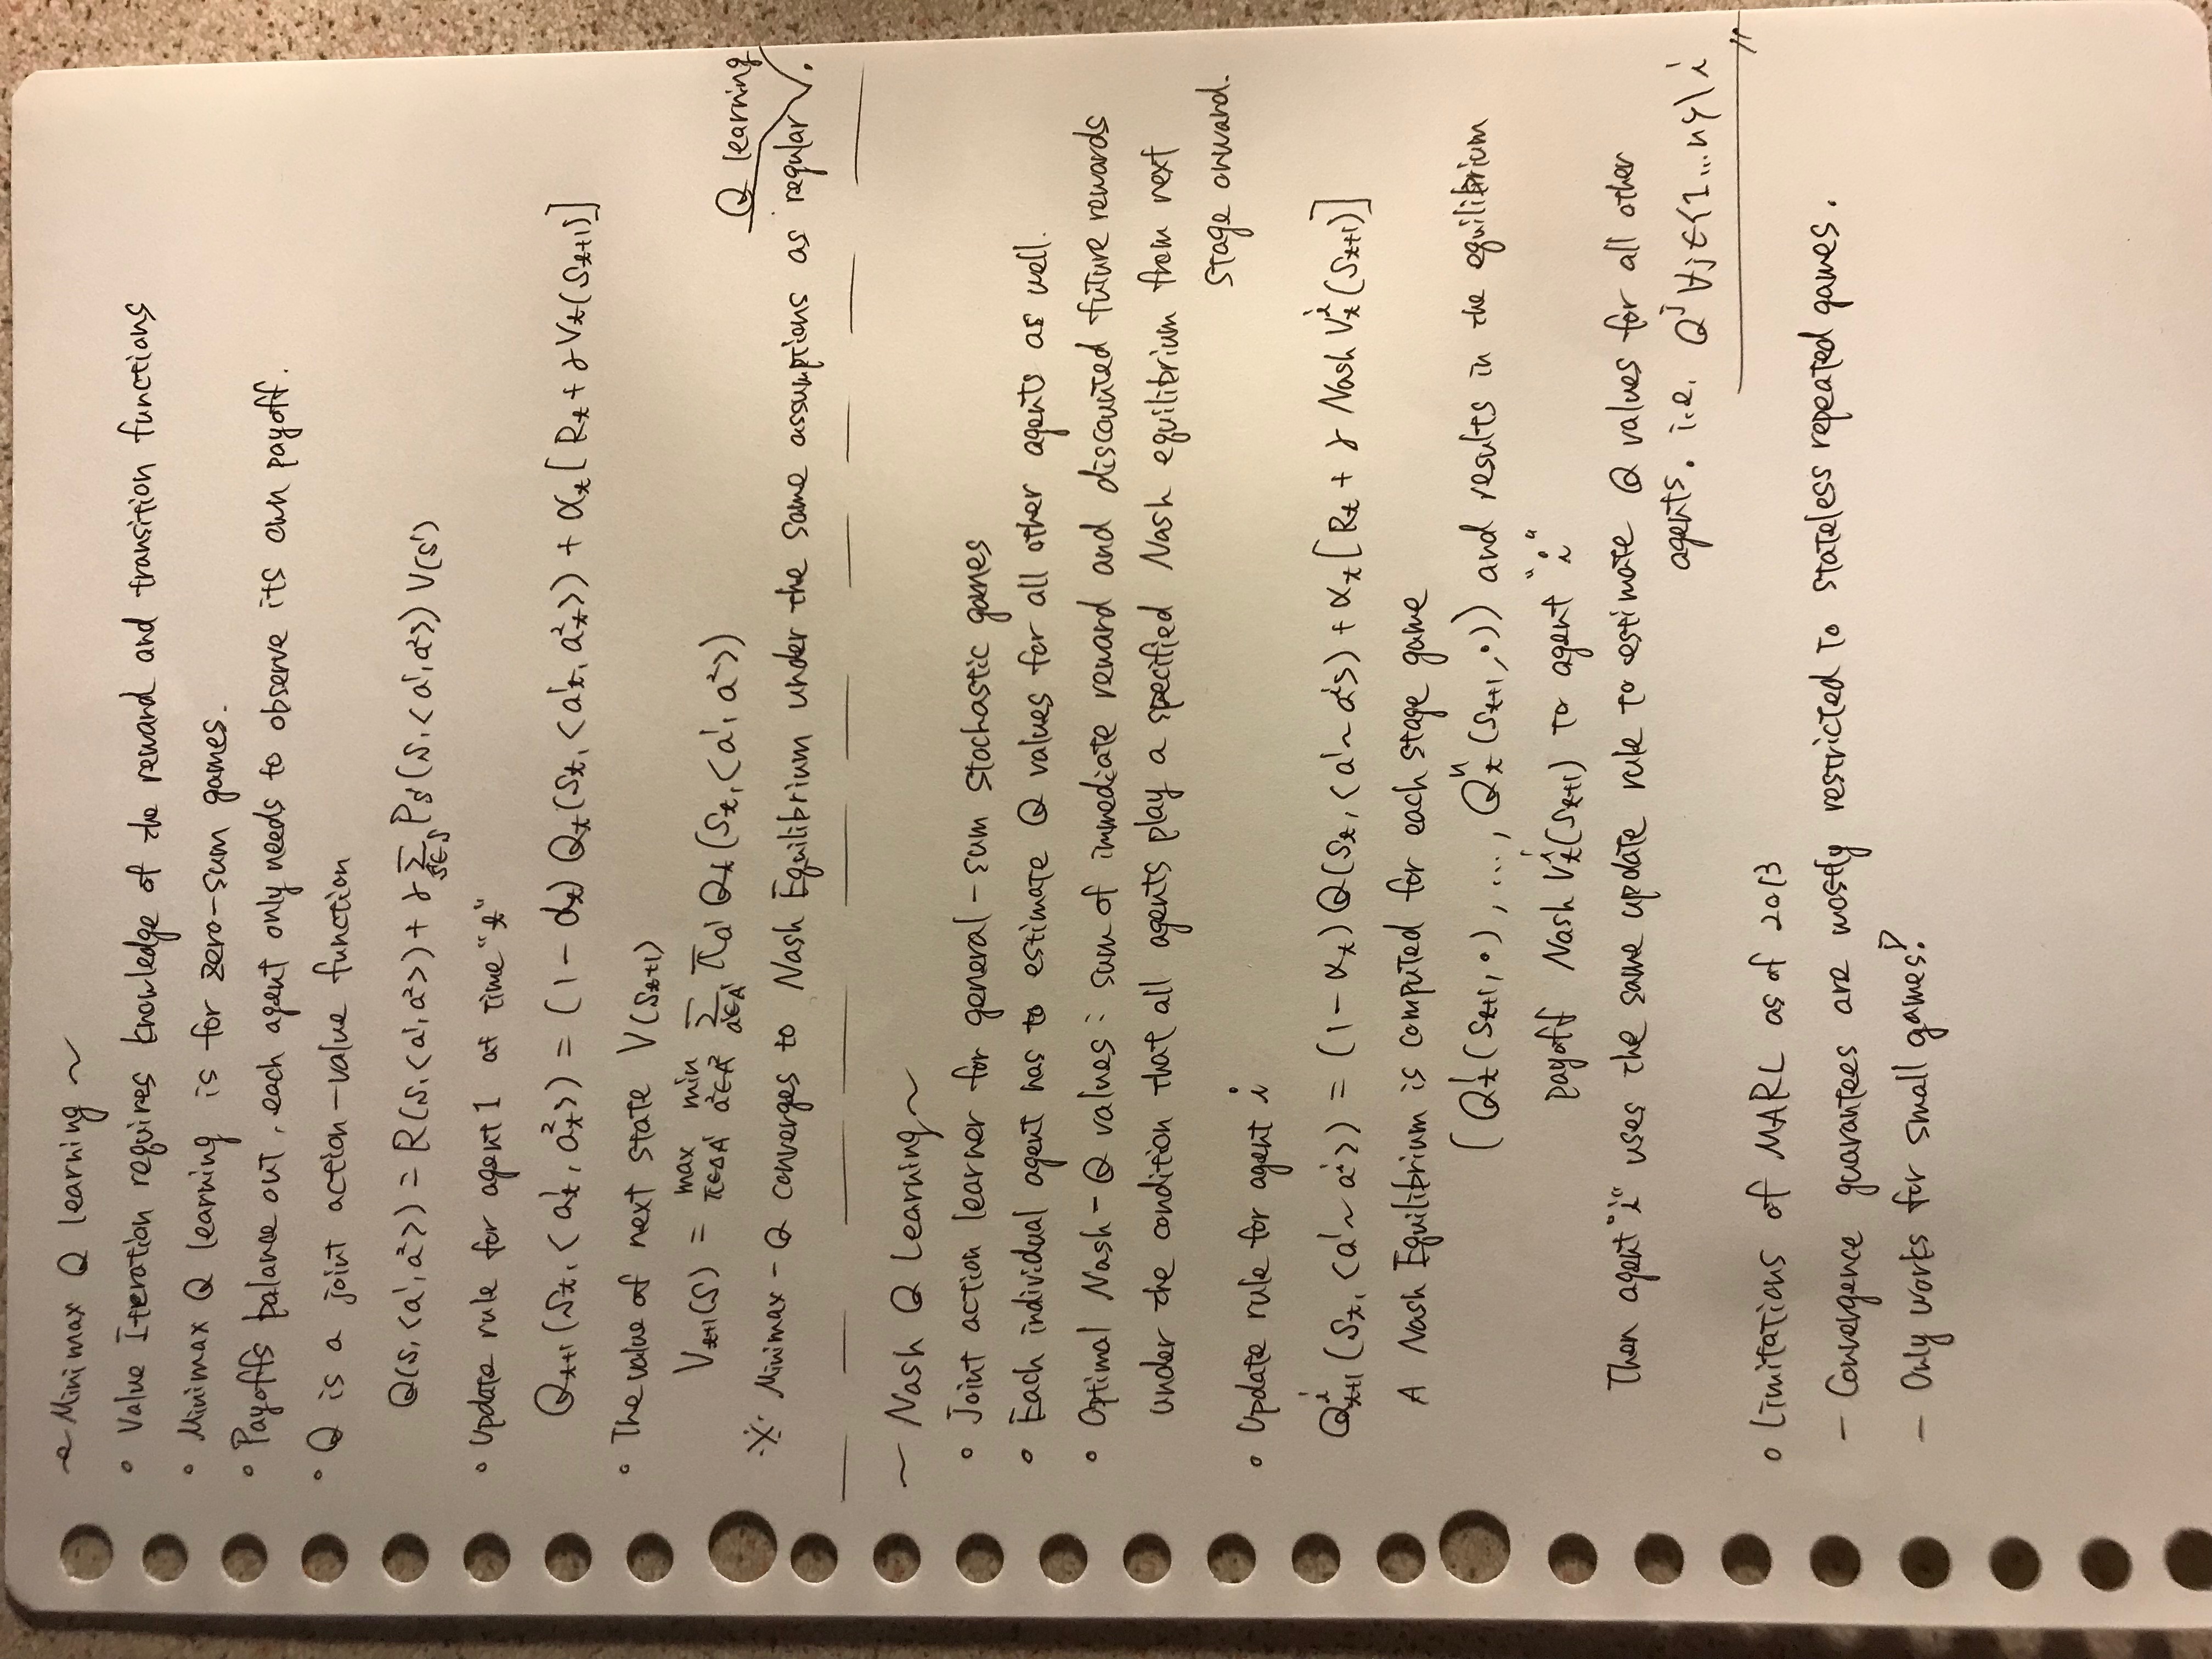 ~ Minimax Q learning ~
◦ Value Iteration requires knowledge of the reward and transition functions
◦ Minimax Q learning is for zero-sum games.
◦ Payoffs balance out, each agent only needs to observe its own payoff.
◦ Q is a joint action-value function
Q(s, <a¹, a²>) = R(s, <a¹, a²>) + γ Σ_{s'∈S} P_{s'}(s, <a¹, a²>) V(s')
◦ Update rule for agent 1 at time "t"
Q_{t+1}(s_t, <a¹_t, a²_t>) = (1 - α_t) Q_t(s_t, <a¹_t, a²_t>) + α_t [R_t + γ V_t(s_{t+1})]
◦ The value of next state V(s_{t+1})
V_{t+1}(s) = max_{π∈ΔA¹} min_{a²∈A²} Σ_{a¹∈A¹} π_{a¹} Q_t(s_t, <a¹, a²>)
※ Minimax-Q converges to Nash Equilibrium under the same assumptions as regular Q learning.
~ Nash Q Learning ~
◦ Joint action learner for general-sum stochastic games
◦ Each individual agent has to estimate Q values for all other agents as well.
◦ Optimal Nash-Q values : sum of immediate reward and discounted future rewards
under the condition that all agents play a specified Nash equilibrium from next
stage onward.
◦ Update rule for agent i
Q^i_{t+1}(s_t, <a¹ ~ aⁱ>) = (1 - α_t) Q(s_t, <a¹ ~ aⁱ>) + α_t [R_t + γ Nash V^i_t(s_{t+1})]
A Nash Equilibrium is computed for each stage game
(Q¹_t(s_{t+1}, •), ..., Qⁿ_t(s_{t+1}, •)) and results in the equilibrium
payoff Nash V^i_t(s_{t+1}) to agent "i"
Then agent "i" uses the same update rule to estimate Q values for all other
agents. i.e. Q^j ∀j∈{1...n}\i
◦ Limitations of MARL as of 2013
- Convergence guarantees are mostly restricted to stateless repeated games.
- Only works for small games!